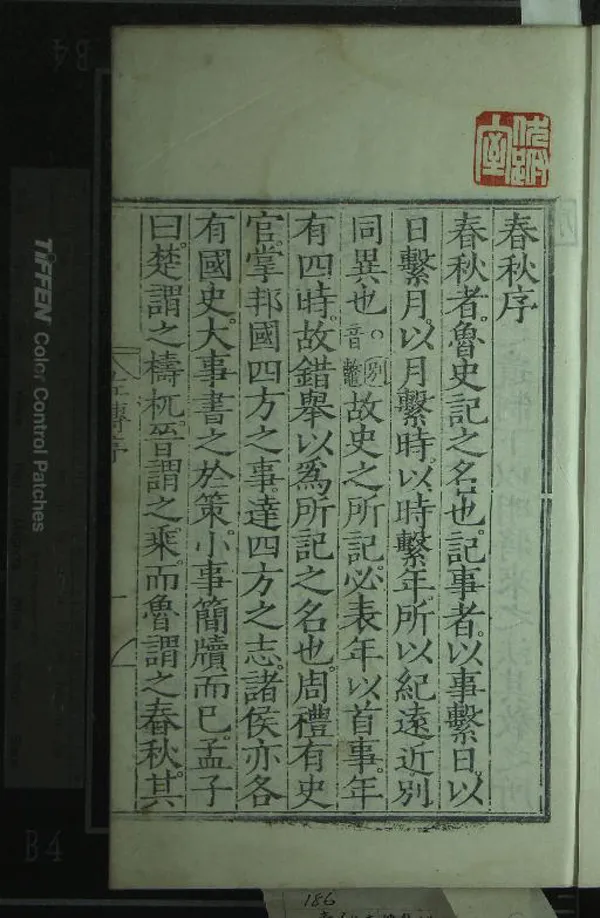 春秋序
春秋者。魯史記之名也。記事者。以事繫日。以
日繫月。以月繫時。以時繫年。所以紀遠近。別
同異也。○別音鼈故史之所記。必表年以首事。年
有四時。故錯舉以爲所記之名也。周禮有史
官。掌邦國四方之事。達四方之志。諸侯亦各
有國史。大事書之於策。小事簡牘而已。孟子
曰。楚謂之檮杌。晉謂之乘。而魯謂之春秋。其
TIFFEN Color Control Patches
B4
B4
186